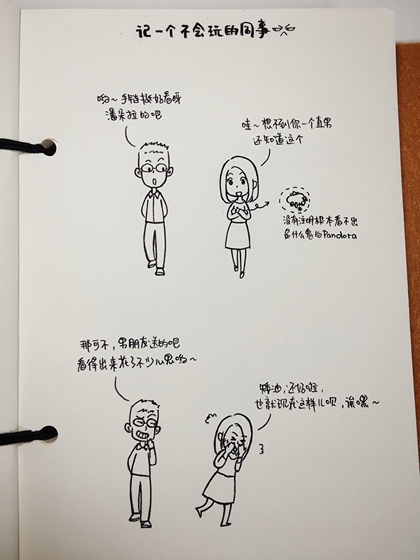 记一个不会玩的同事
哟~手链挺好看呀
潘朵拉的吧
哇~想不到你一个直男
还知道这个
没有注明根本看不出
是什么鬼的Pandora
那可不,男朋友送的吧
看得出来花了不少心思哟~
啊油,还好啦,
也就现在这样儿呗,诶嘿~